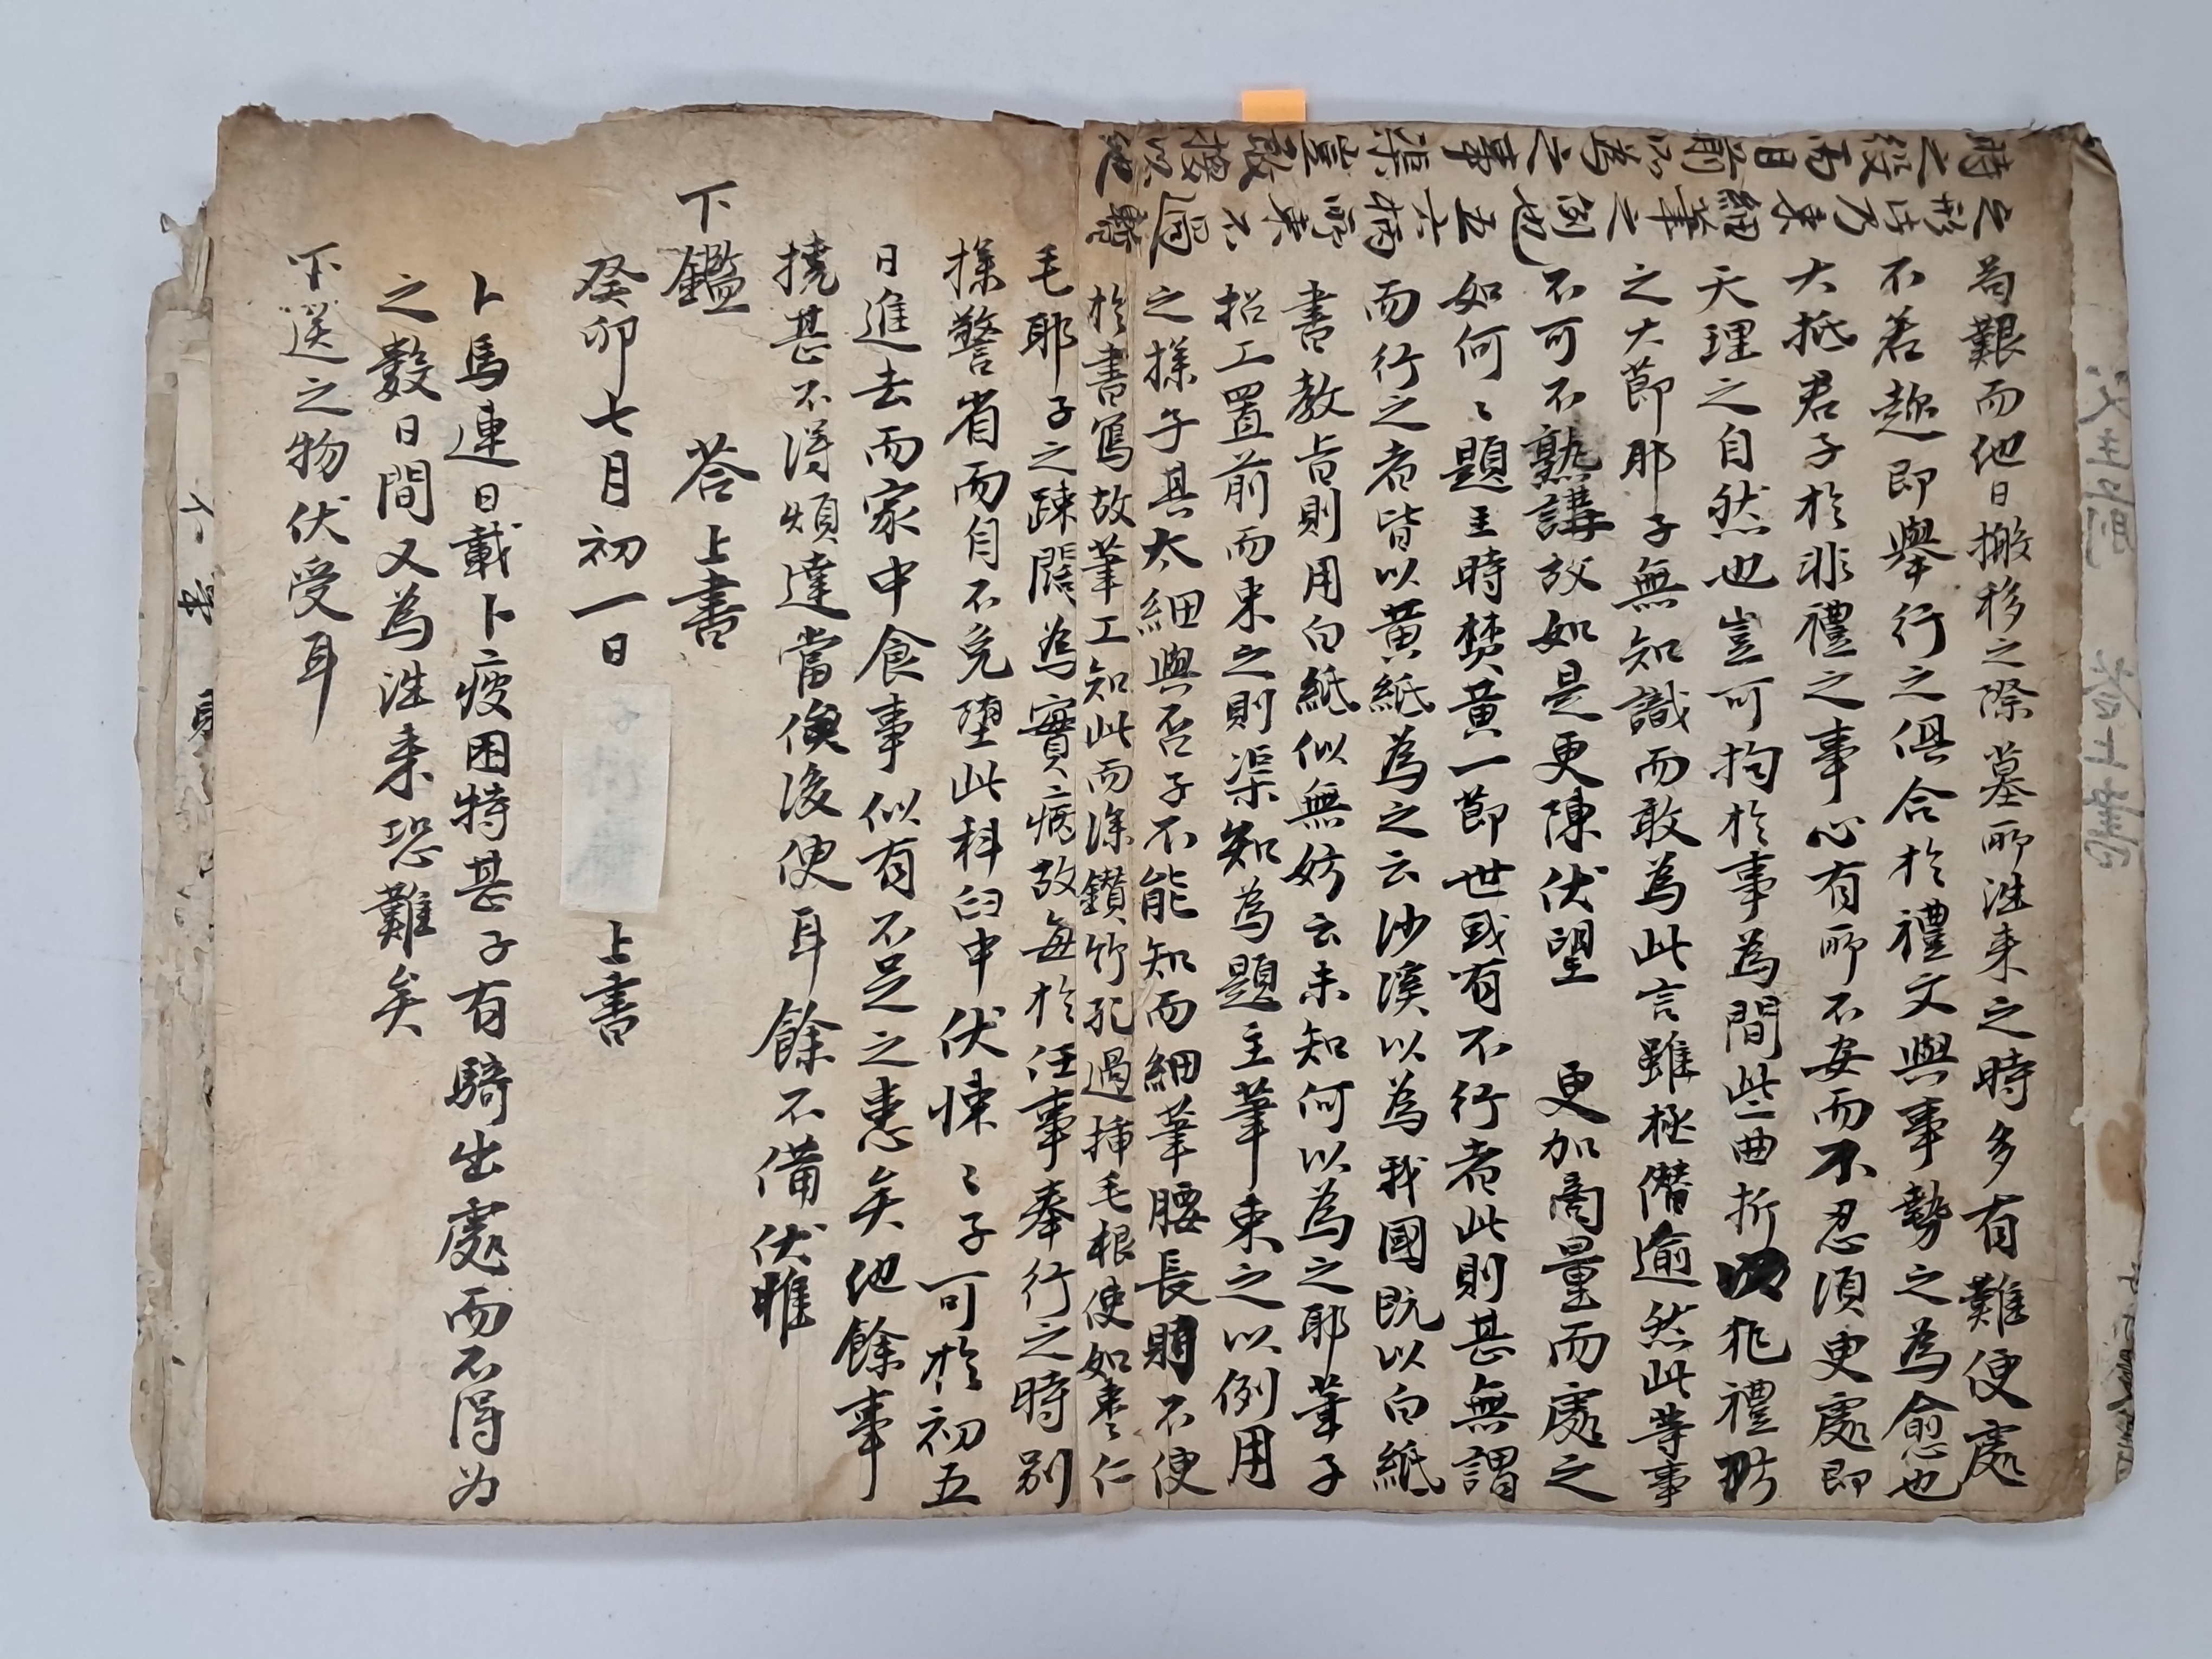 苟艱而他日搬移之際墓所往来之時多有難便處
不若趁即舉行之俱合於禮文與事勢之為愈也
大抵君子於非禮之事心有所不安而不忍須更處即
天理之自然也豈可拘於事為間些曲折犯禮
之大節耶子無知識而敢為此言雖極僭逾然此等事
不可不熟講故如是更陳伏望 更加商量而處之
如何〻題主時焚黃一節世或有不行者此則甚無謂
而行之者皆以黃紙為之云沙溪以為我國既以白紙
書教旨則用白紙似無妨云未知何以為之耶筆子
招工置前而束之則渠知為題主筆束之以例用
之㨾子其太細與否子不能知而細筆腰長不便
於書寫故筆工知此而深鑽竹孔過揷毛根使如棗仁
毛耶子之踈闊為實病故每於任事奉行之時別
㨾警省而自不免墮此科臼中伏悚〻子可於初五
日進去而家中食事似有不足之患矣他餘事
撓甚不得煩達當俟後便耳餘不備伏惟
下鑑 答上書
癸卯七月初一日 上書
卜馬連日載卜疲困特甚子有騎出處而不得为
之數日間又為往来恐難矣
下送之物伏受耳
時之後而目前所為之事渠豈敢擾以他
之形
細筆之例也五六柄所束不過
父主前 答上書